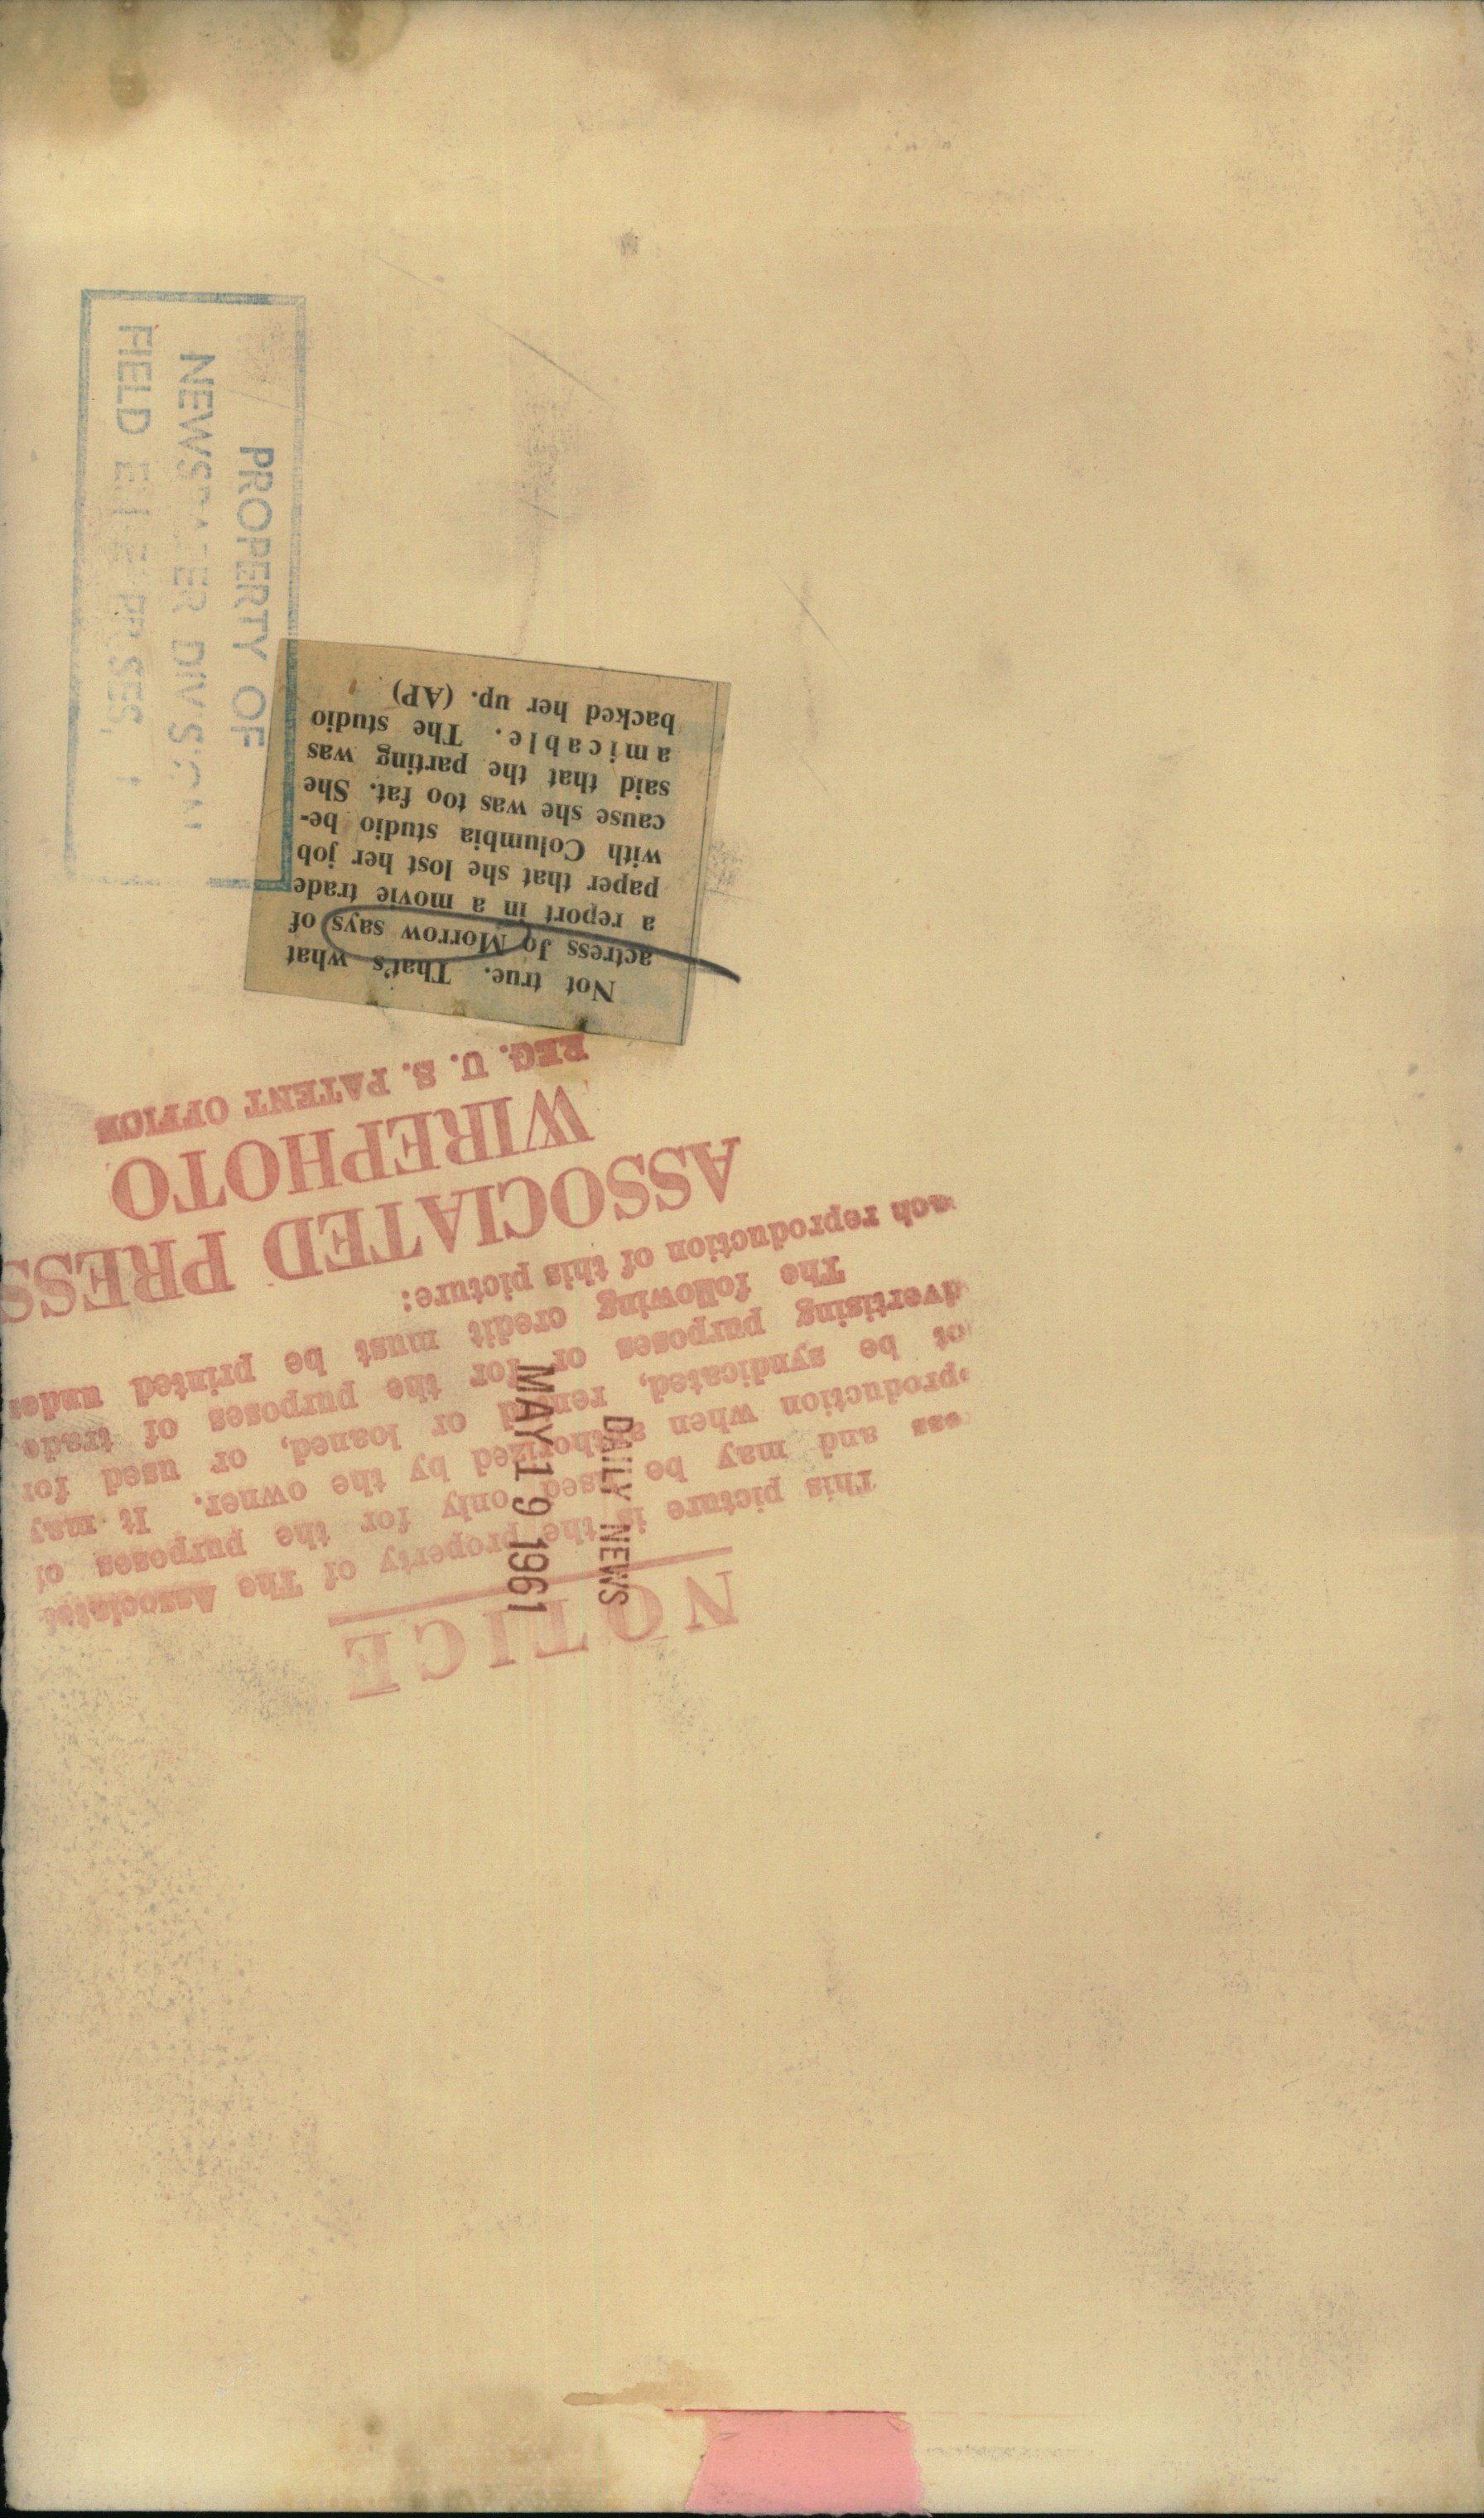 PROPERTY OF
NEWSPAPER DIVISION
FIELD
Not true. That's what
actress Jo Morrow says of
a report in a movie trade
paper that she lost her job
with Columbia studio be-
cause she was too fat. She
said that the parting was
amicable. The studio
backed her up. (AP)
NOTICE
This picture is the property of The Associated
ess and may be used only for the purposes of
eproduction when authorized by the owner. It may
ot be syndicated, rented or loaned, or used for
dvertising purposes or for the purposes of trade
The following credit must be printed under
ach reproduction of this picture:
ASSOCIATED PRESS
WIREPHOTO
REG. U. S. PATENT OFFICE
DAILY NEWS
MAY 19 1961